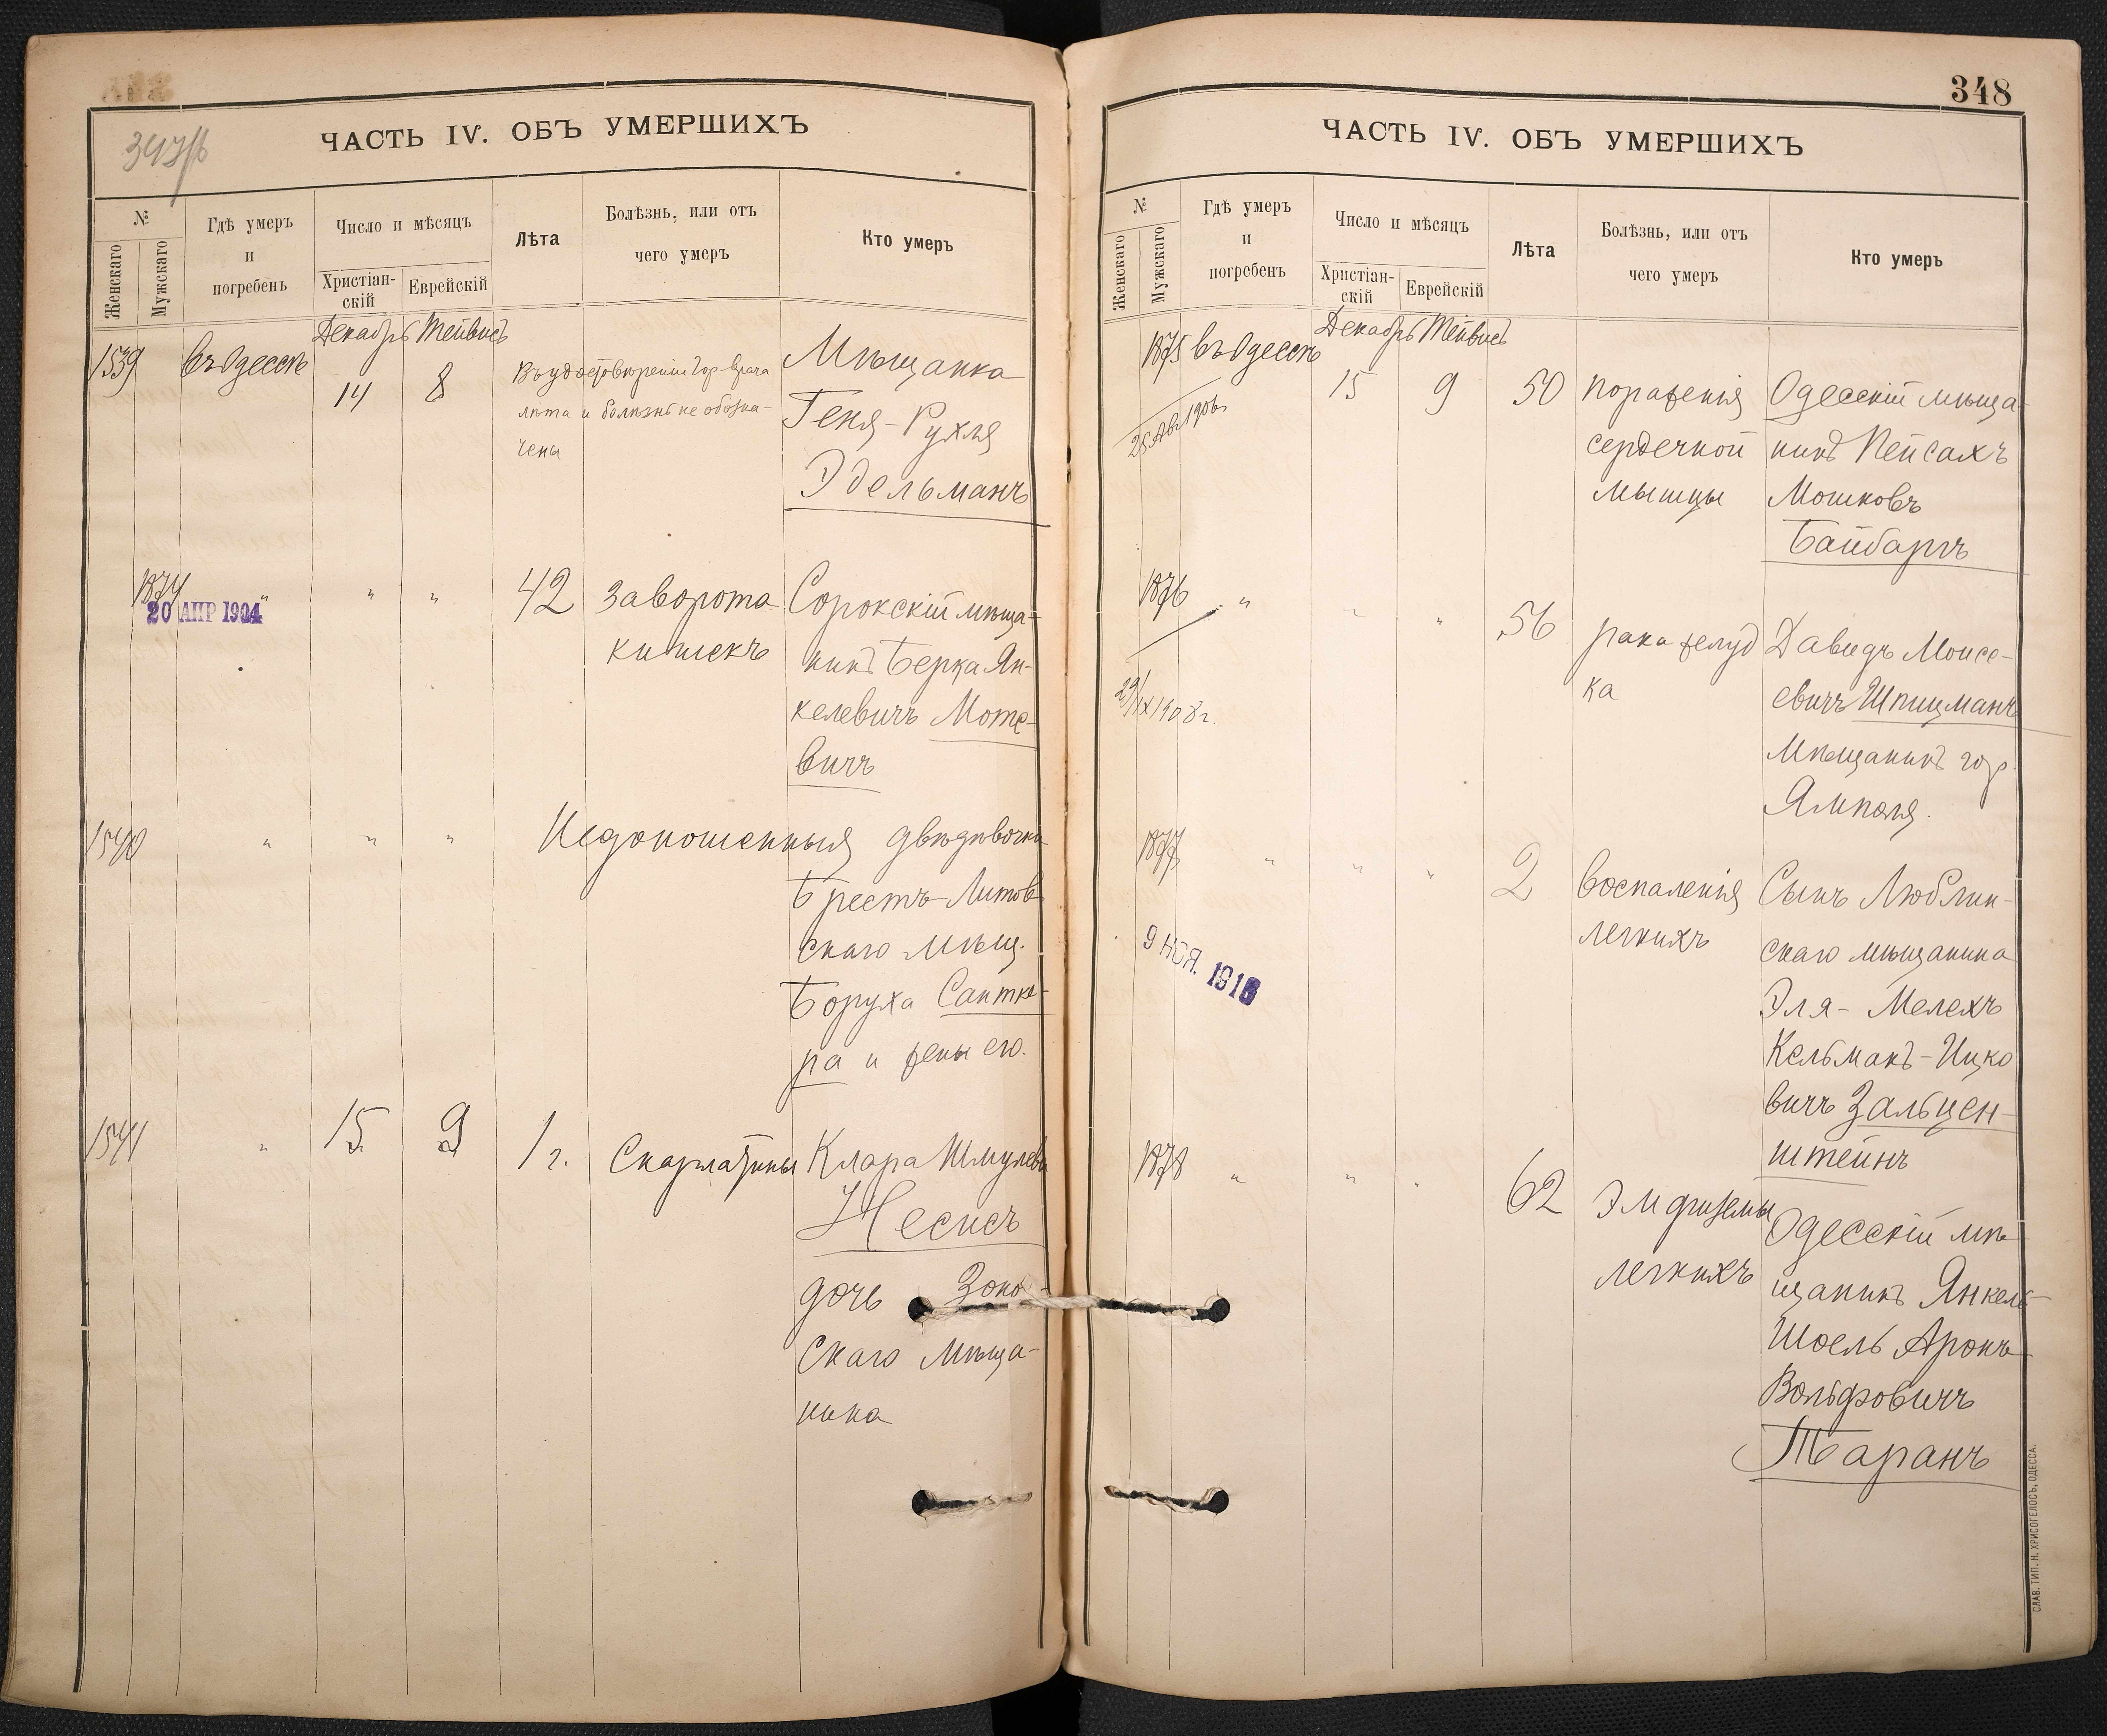 347/б
ЧАСТЬ IV. ОБЪ УМЕРШИХЪ
№
Женскаго
Мужскаго
Гдѣ умеръ
и
погребенъ
Число и мѣсяцъ
Христіан-
скій
Еврейскій
Лѣта
Болѣзнь, или отъ
чего умеръ
Кто умеръ
Декабрь Тейвисъ
1539 въ Одессѣ 14 8
Въ удостовѣреніи Гор врача
лѣта и болѣзнь не обозна-
чены
Мѣщанка
Геня-Рухля
Эдельманъ
1874 " " " 42
20 АПР 1904
заворота
кишекъ
Сорокскій мѣща-
нинъ Берка Ян-
келевичъ Моте-
вичъ
1540 " " "
Недоношенныя двѣ дѣвочки
Брестъ-Литов
скаго мѣщ.
Боруха Сантке-
ра и жены его.
1541 " 15 9 1 г. Скарлатины
Клара Шмулева
Несисъ
дочь
скаго мѣща-
нина
348
ЧАСТЬ IV. ОБЪ УМЕРШИХЪ
№
Женскаго
Мужскаго
Гдѣ умеръ
и
погребенъ
Число и мѣсяцъ
Христіан-
скій
Еврейскій
Лѣта
Болѣзнь, или отъ
чего умеръ
Кто умеръ
Декабрь Тейвисъ
1875 въ Одессѣ 15 9 50
25 Авг 1906
пораженія
сердечной
мышцы
Одесскій мѣща-
нинъ Пейсахъ
Мошковъ
Байбаръ
1876 " " " 56
29/IX 1908 г.
рака желуд
ка
Давидъ Моисе-
евичъ Шпицманъ
Мѣщанинъ гор.
Ямполя.
1877 " " " 2
9 НОЯ. 1916
воспаленія
легкихъ
Сынъ Люблин-
скаго мѣщанина
Эля-Мелехъ
Кельманъ-Ицко
вичъ Зальцен-
штейнъ
1878 " " " 62
Эмфиземы
легкихъ
Одесскій мѣ-
щанинъ Янкель-
Шоель Аронъ-
Вольфовичъ
Таранъ
СЛАВ. ТИП. Н. ХРИСОГЕЛОСЪ, ОДЕССА.